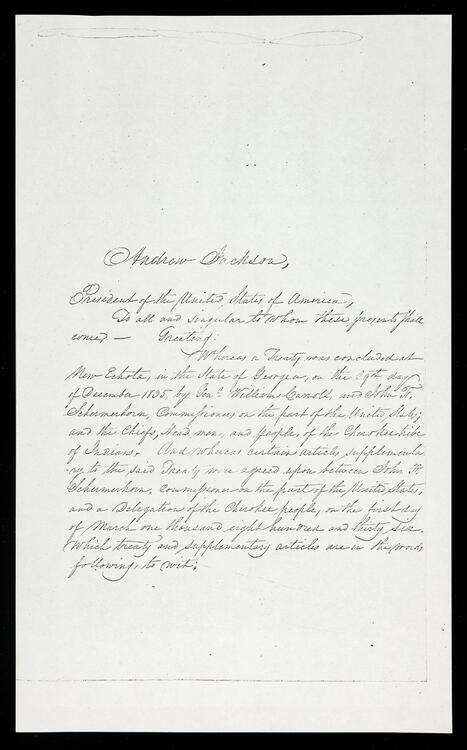 Andrew Jackson,
President of the United States of America,
To all and singular to whom these presents shall
come; — Greeting:
Whereas a Treaty was concluded at
New Echota, in the State of Georgia, on the 29th day
of December 1835, by Genl. William Carroll, and John F.
Schermerhorn, Commissioners on the part of the United States,
and the Chiefs, Head men, and people, of the Cherokee tribe
of Indians. And whereas certain articles supplementa-
-ry to the said Treaty were agreed upon between John F.
Schermerhorn, commissioner on the part of the United States,
and a Delegation of the Cherokee people, on the first day
of March one thousand eight hundred and thirty six.
Which treaty and supplementary articles are in the words
following, to wit;